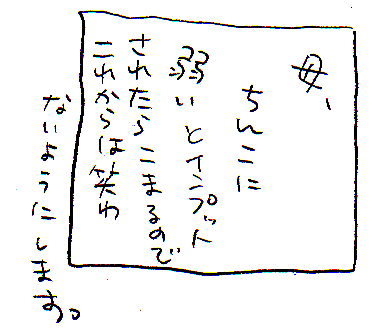 母、
ちんこに
弱いとインプット
されたらこまるので
これからは笑わ
ないようにします。